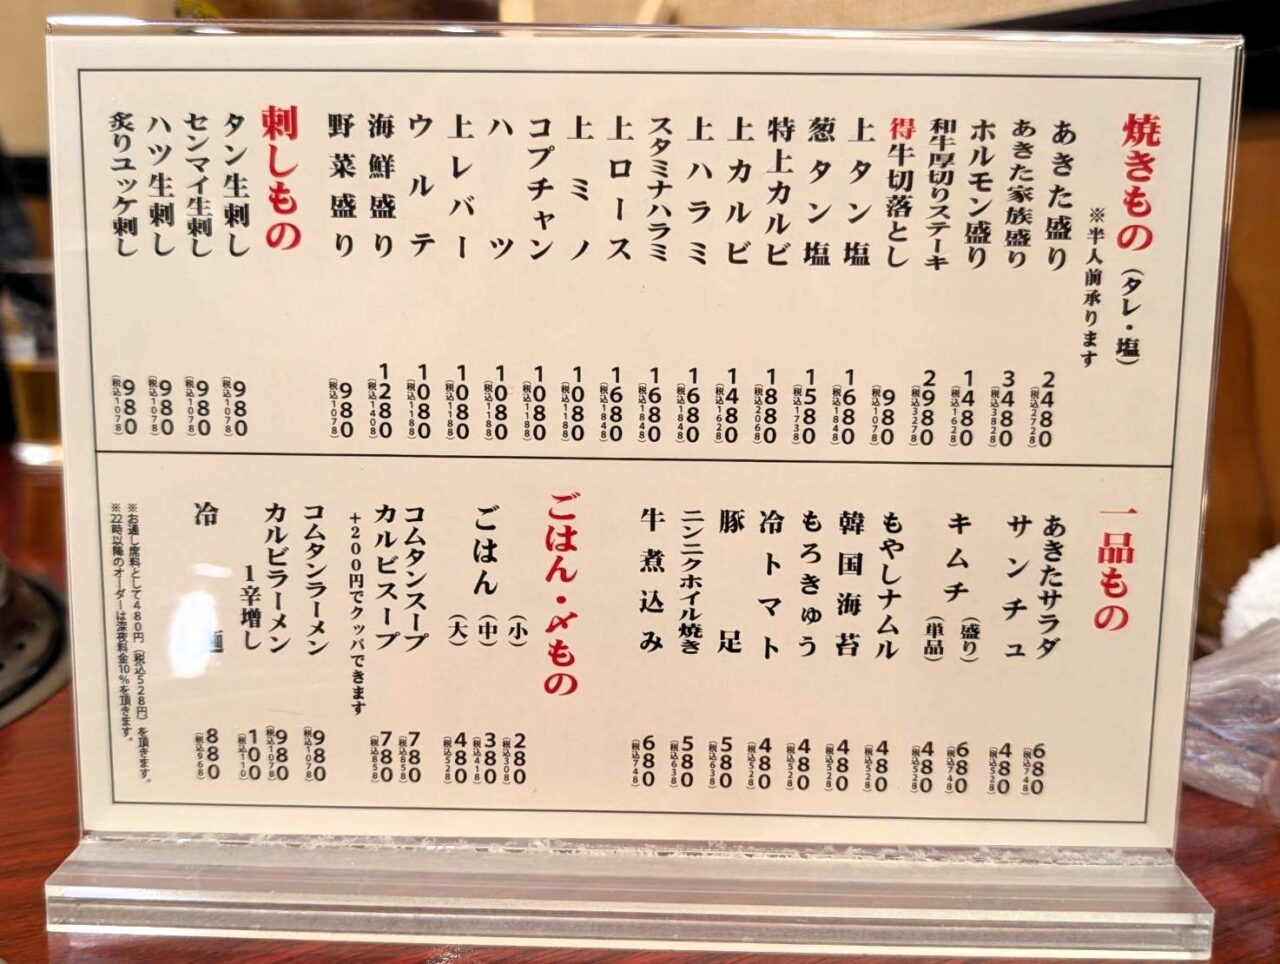 焼きもの（タレ・塩）
※半人前承ります
あきた盛り 2480（税込2728）
あきた家族盛り 3480（税込3828）
ホルモン盛り 1480（税込1628）
和牛厚切りステーキ 2980（税込3278）
得牛切落とし 980（税込1078）
上タン塩 1680（税込1848）
葱タン塩 1580（税込1738）
特上カルビ 1880（税込2068）
上カルビ 1480（税込1628）
上ハラミ 1680（税込1848）
スタミナハラミ 1680（税込1848）
上ロース 1680（税込1848）
上ミノ 1080（税込1188）
コプチャン 1080（税込1188）
ハツ 1080（税込1188）
上レバー 1080（税込1188）
ウルテ 1080（税込1188）
海鮮盛り 1280（税込1408）
野菜盛り 980（税込1078）
刺しもの
タン生刺し 980（税込1078）
センマイ生刺し 980（税込1078）
ハツ生刺し 980（税込1078）
炙りユッケ刺し 980（税込1078）
一品もの
あきたサラダ 680（税込748）
サンチュ 480（税込528）
キムチ（盛り） 680（税込748）
（単品） 480（税込528）
もやしナムル 480（税込528）
韓国海苔 480（税込528）
もろきゅう 480（税込528）
冷トマト 480（税込528）
豚足 580（税込638）
ニンニクホイル焼き 580（税込638）
牛煮込み 680（税込748）
ごはん・〆もの
ごはん（小） 280（税込308）
（中） 380（税込418）
（大） 480（税込528）
コムタンスープ 780（税込858）
カルビスープ 780（税込858）
+200円でクッパできます
コムタンラーメン 980（税込1078）
カルビラーメン 980（税込1078）
1辛増し 100（税込110）
冷麺 880（税込968）
※お通し席料として480円（税込528円）を頂きます。
※22時以降のオーダーは深夜料金10%を頂きます。